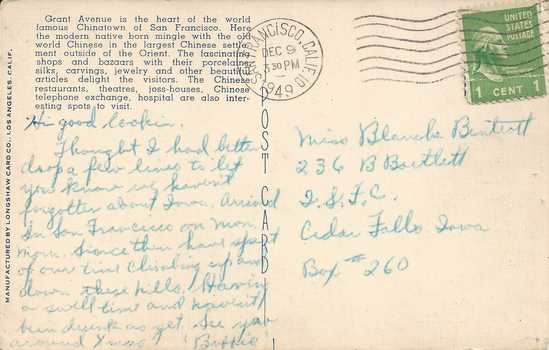 Grant Avenue is the heart of the world
famous Chinatown of San Francisco. Here
the modern native born mingle with the old
world Chinese in the largest Chinese settle-
ment outside of the Orient. The fascinating
shops and bazaars with their porcelains,
silks, carvings, jewelry and other beautiful
articles delight the visitors. The Chinese
restaurants, theatres, joss-houses, Chinese
telephone exchange, hospital are also inter-
esting spots to visit.
MANUFACTURED BY LONGSHAW CARD CO., LOS ANGELES, CALIF.
POST CARD
SAN FRANCISCO, CALIF.
DEC 9
3 30 PM
1949
UNITED
STATES
POSTAGE
1 CENT 1
Hi good lookin.
Thought I had better
drop a few lines to let
you know we haven't
forgotten about Iowa. Arrived
in San Francisco on Mon.
morn. Since then have spent
of our time climbing up and
down these hills. Having
a swell time and haven't
been drunk as yet. See you
around Xmas.
Miss Blanche Bentrott
236 B Bartlett
I.S.T.C.
Cedar Falls Iowa
Box #260